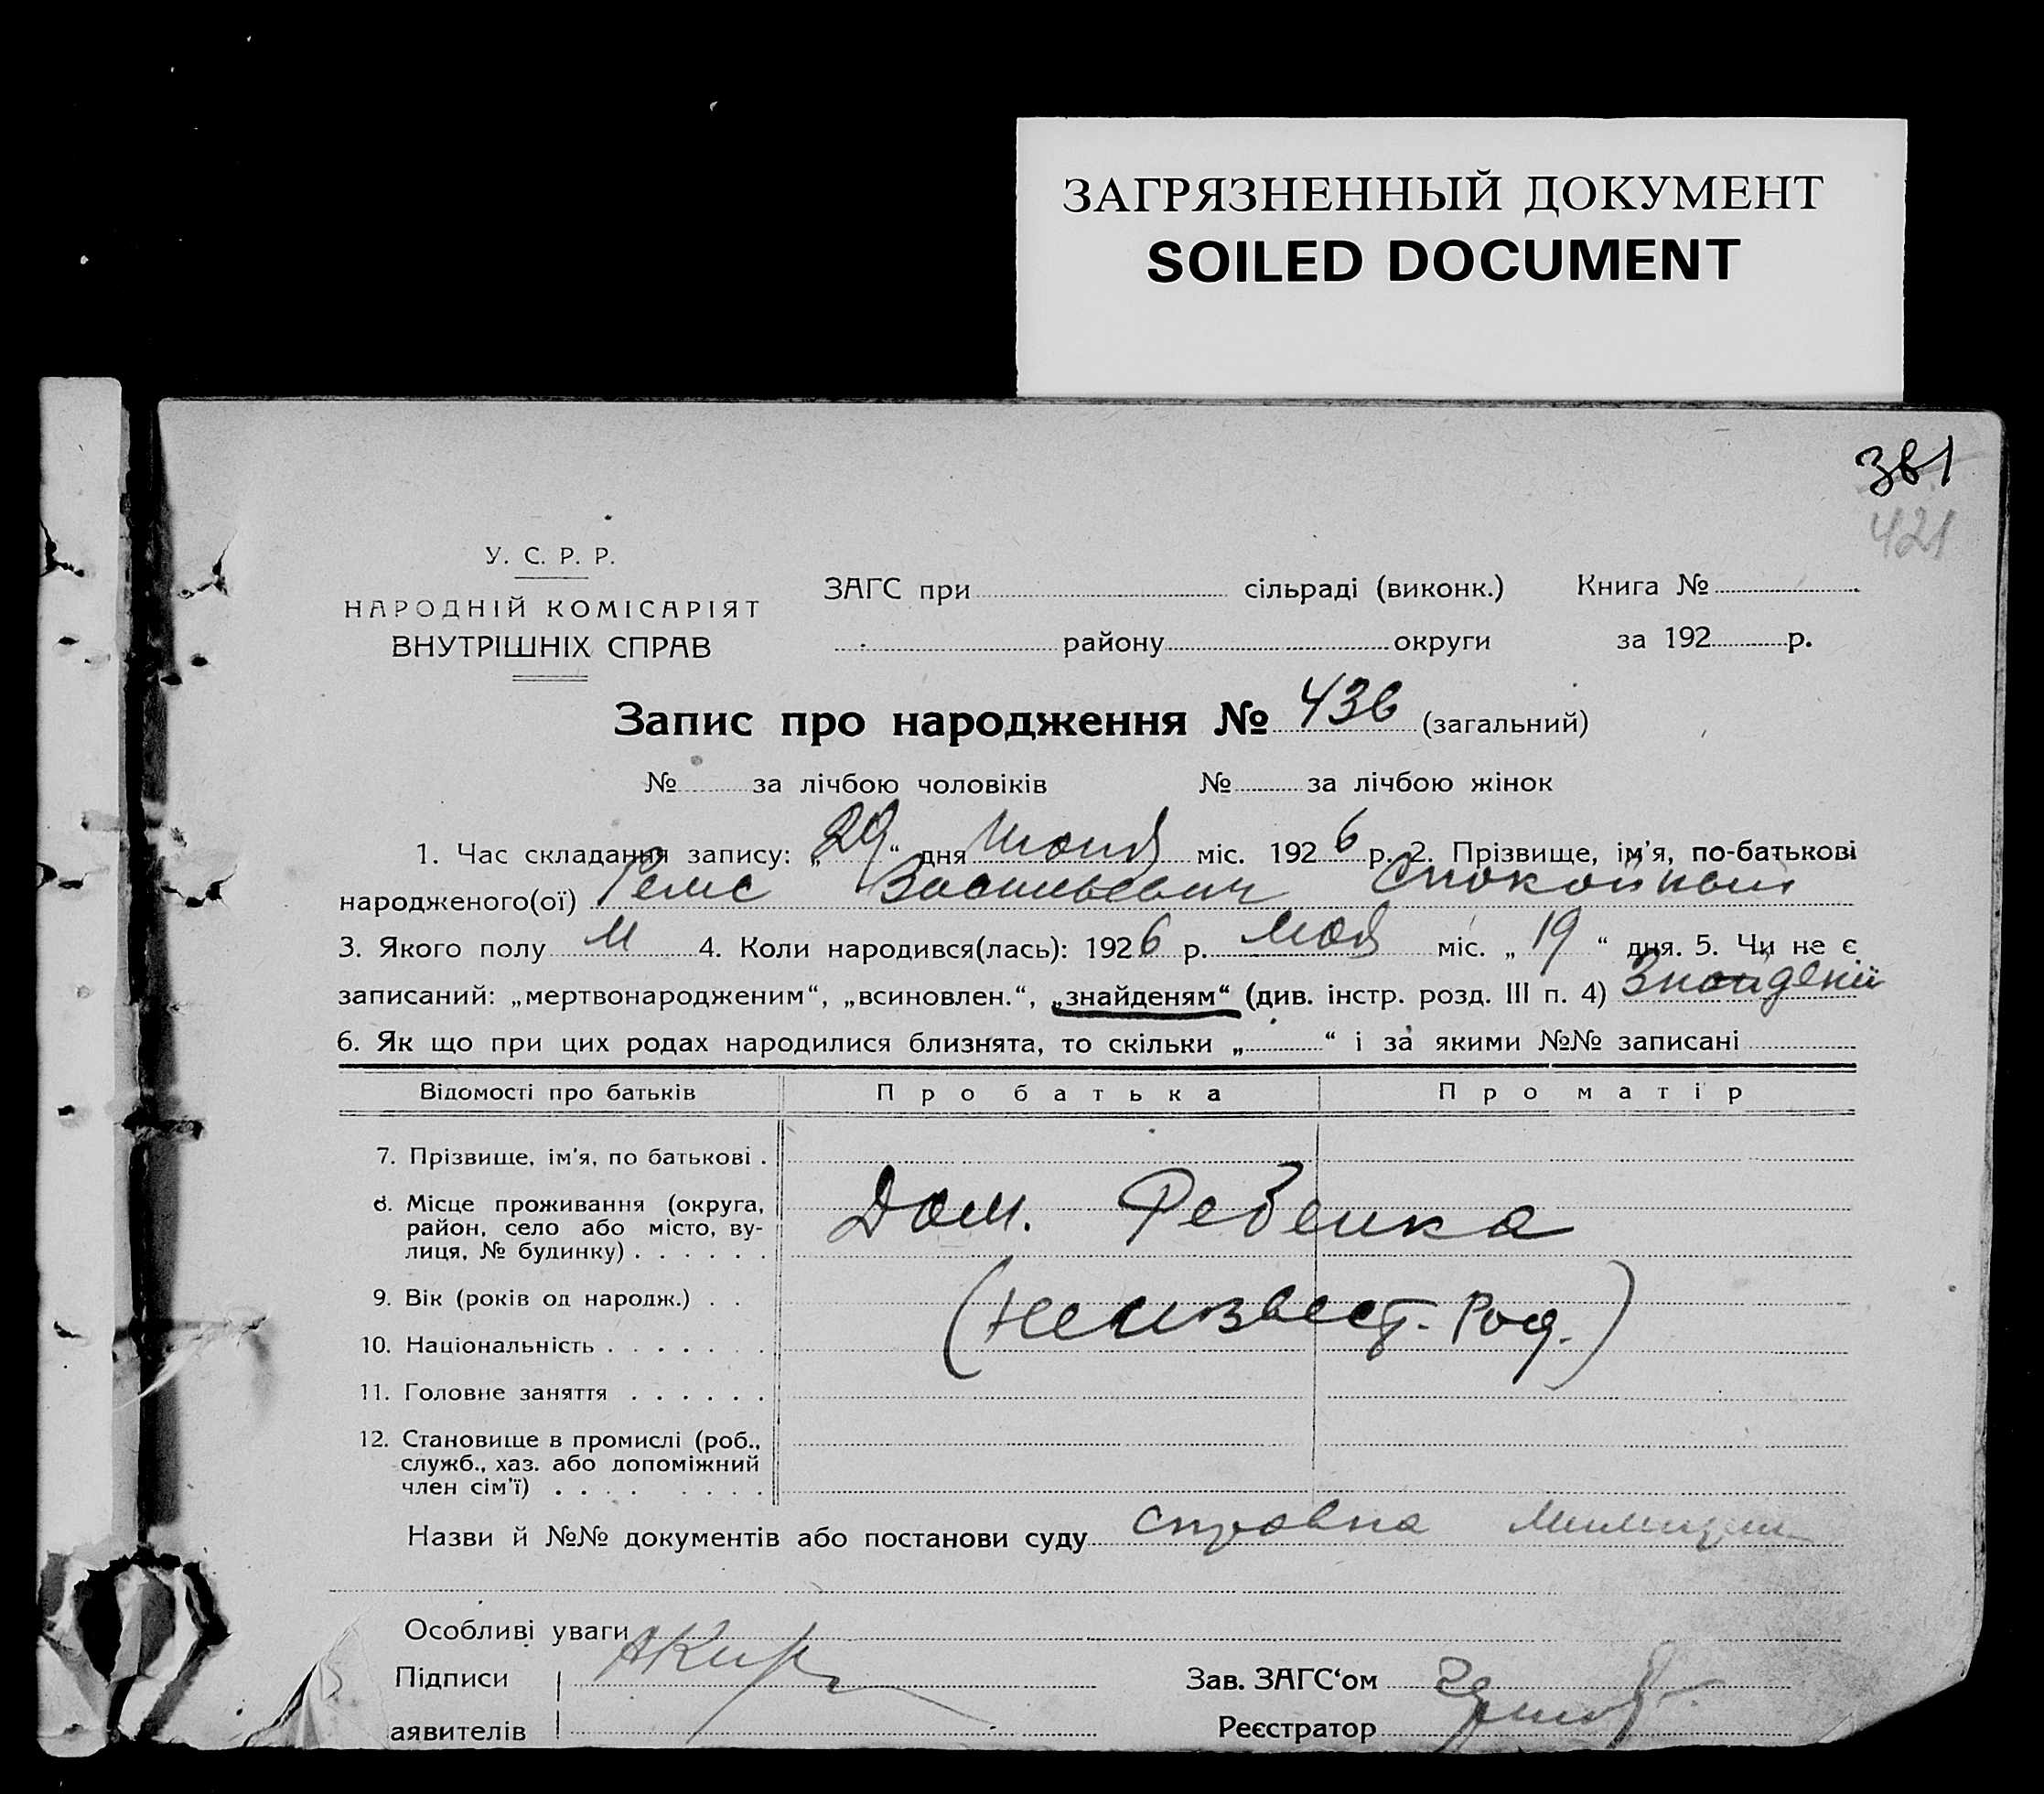 ЗАГРЯЗНЕННЫЙ ДОКУМЕНТ
SOILED DOCUMENT
381
421
У. С. Р. Р.
НАРОДНІЙ КОМІСАРІЯТ
ВНУТРІШНІХ СПРАВ
ЗАГС при сільраді (виконк.) Книга №
району округи за 192 р.
Запис про народження № 436 (загальний)
№ за лічбою чоловіків № за лічбою жінок
1. Час складання запису: „29“ дня Июня міс. 1926 р. 2. Прізвище, ім’я, по-батькові
народженого(ої) Васильевич Спокойный
3. Якого полу М 4. Коли народився(лась): 1926 р. Мая міс. „19“ дня. 5. Чи не є
записаний: „мертвонародженим“, „всиновлен.“, „знайденям“ (див. інстр. розд. III п. 4) Знайдений
6. Як що при цих родах народилися близнята, то скільки „ “ і за якими №№ записані
Відомості про батьків Про батька Про матір
7. Прізвище, ім’я, по батькові .
8. Місце проживання (округа,
район, село або місто, ву-
лиця, № будинку) . . . . . .
Дом. Ребенка
9. Вік (років од народж.) . .
(Неизвест. Род.)
10. Національність . . . . . . .
11. Головне заняття . . . . . .
12. Становище в промислі (роб.,
служб., хаз. або допоміжний
член сім’ї) . . . . . . . .
Назви й №№ документів або постанови суду справка Милиции
Особливі уваги
Підписи Зав. ЗАГС‘ом
аявителів Реєстратор